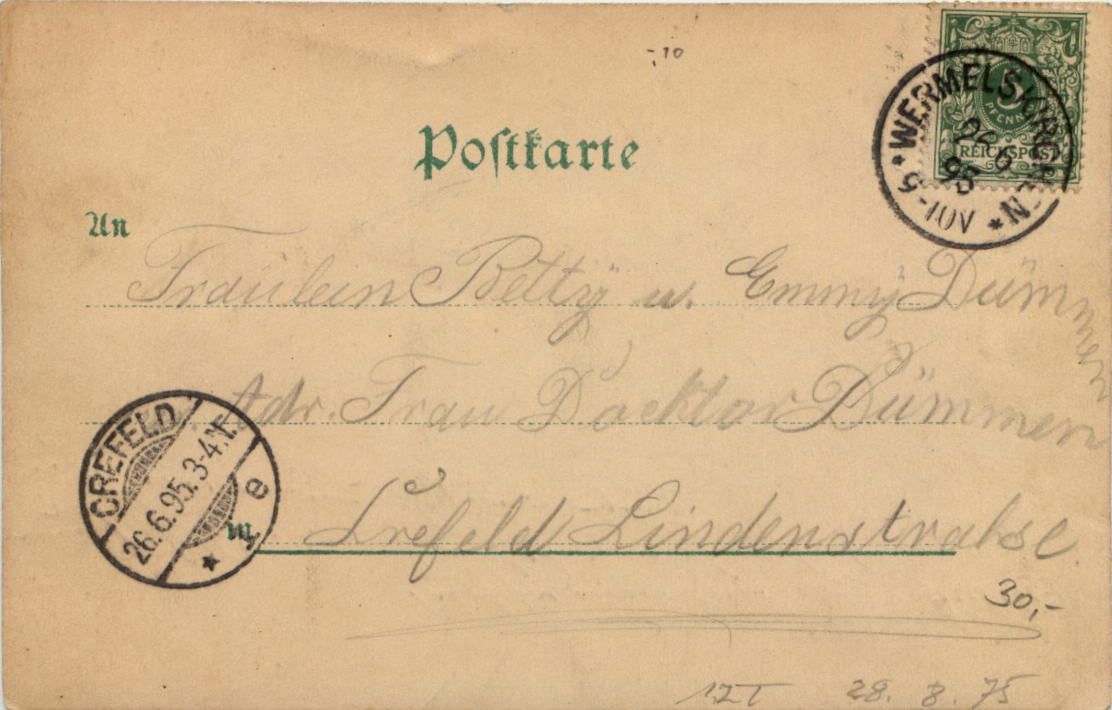 -,10
5
PFENNIG
REICHSPOST
* WERMELSKIRCHEN *
26 6
95
5-10V
Postkarte
An
Fräulein Betty u. Emmy Dümmen
Adr. Frau Docktor Dümmen
in Crefeld Lindenstrahse
CREFELD
26.6.95.3-4N.
* 1 e
30,-
28. 8. 75